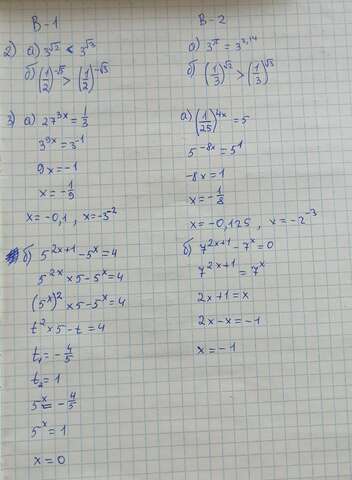 В-1
2) а) 3^√2 < 3^√3
б) (1/2)^-√5 > (1/2)^-√3
3) а) 27^3x = 1/3
3^9x = 3^-1
9x = -1
x = -1/9
x = -0,1 , x = -3^2
б) 5^2x+1 - 5^x = 4
5^2x × 5 - 5^x = 4
(5^x)^2 × 5 - 5^x = 4
t^2 × 5 - t = 4
t₁ = -4/5
t₂ = 1
5^x = -4/5
5^x = 1
x = 0
В-2
а) 3^π = 3^3,14
б) (1/3)^√2 > (1/3)^√3
а) (1/25)^4x = 5
5^-8x = 5^1
-8x = 1
x = -1/8
x = -0,125 , x = -2^-3
б) 7^2x+1 - 7^x = 0
7^2x+1 = 7^x
2x+1 = x
2x - x = -1
x = -1